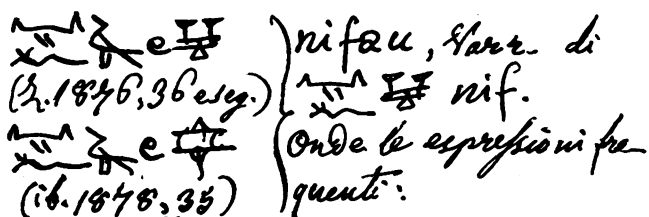 e
(Z. 1876, 36 e seg.)
e
(ib. 1878, 35)
nifau, Varr. di
nif.
Onde le espressioni fre-
quenti: